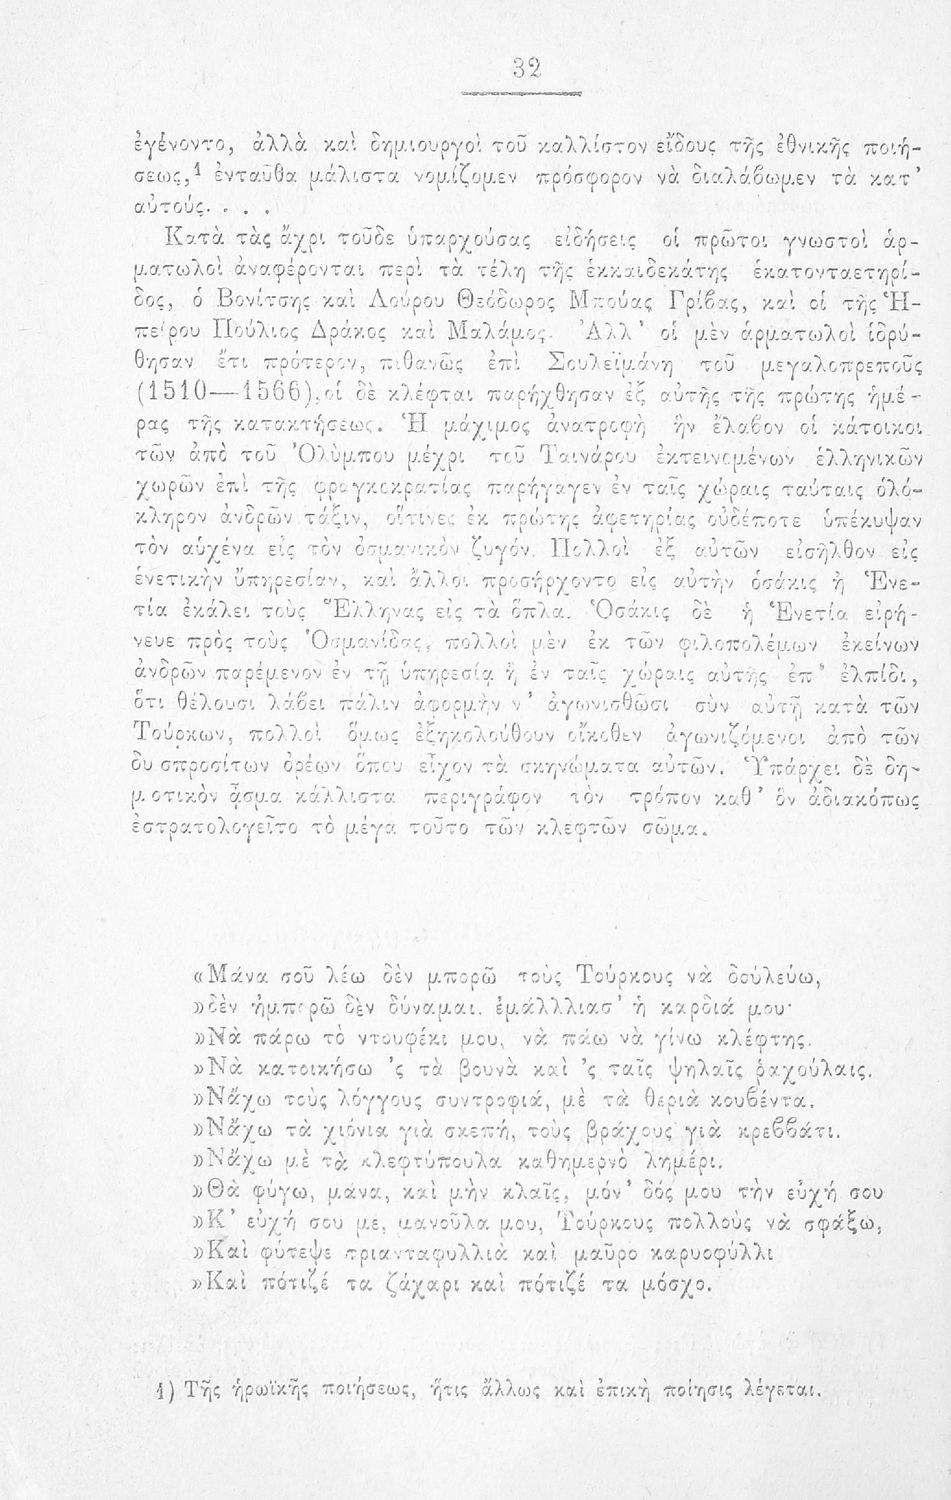 32
ἐγένοντο, ἀλλὰ καὶ δημιουργοὶ τοῦ καλλίστον εἴδους τῆς ἐθνικῆς ποιή-
σεως,¹ ἐνταῦθα μάλιστα νομίζομεν πρόσφορον νὰ διαλάβωμεν τὰ κατ’
αὐτούς. . . .
Κατὰ τὰς ἄχρι τοῦδε ὑπαρχούσας εἰδήσεις οἱ πρῶτοι γνωστοὶ ἁρ-
ματωλοὶ ἀναφέρονται περὶ τὰ τέλη τῆς ἑκκαιδεκάτης ἑκατονταετηρί-
δος, ὁ Βονίτσης καὶ Λούρου Θεόδωρος Μπούας Γρίβας, καὶ οἱ τῆς Ἠ-
πείρου Πούλιος Δράκος καὶ Μαλάμος. Ἀλλ’ οἱ μὲν ἁρματωλοὶ ἱδρύ-
θησαν ἔτι πρότερον, πιθανῶς ἐπὶ Σουλεϊμάνη τοῦ μεγαλοπρεποῦς
(1510—1566), οἱ δὲ κλέφται παρήχθησαν ἐξ αὐτῆς τῆς πρώτης ἡμέ-
ρας τῆς κατακτήσεως. Ἡ μάχιμος ἀνατροφὴ ἣν ἔλαβον οἱ κάτοικοι
τῶν ἀπὸ τοῦ Ὀλύμπου μέχρι τοῦ Ταινάρου ἐκτεινομένων ἑλληνικῶν
χωρῶν ἐπὶ τῆς φραγκοκρατίας παρήγαγεν ἐν ταῖς χώραις ταύταις ὁλό-
κληρον ἀνδρῶν τάξιν, οἵτινες ἐκ πρώτης ἀφετηρίας οὐδέποτε ὑπέκυψαν
τὸν αὐχένα εἰς τὸν ὀσμανικὸν ζυγόν. Πολλοὶ ἐξ αὐτῶν εἰσῆλθον εἰς
ἑνετικὴν ὑπηρεσίαν, καὶ ἄλλοι προσήρχοντο εἰς αὐτὴν ὁσάκις ἡ Ἑνε-
τία ἐκάλει τοὺς Ἕλληνας εἰς τὰ ὅπλα. Ὁσάκις δὲ ἡ Ἑνετία εἰρή-
νευε πρὸς τοὺς Ὀσμανίδας, πολλοὶ μὲν ἐκ τῶν φιλοπολέμων ἐκείνων
ἀνδρῶν παρέμενον ἐν τῇ ὑπηρεσίᾳ ἢ ἐν ταῖς χώραις αὐτῆς ἐπ’ ἐλπίδι,
ὅτι θέλουσι λάβει πάλιν ἀφορμὴν ν’ ἀγωνισθῶσι σὺν αὐτῇ κατὰ τῶν
Τούρκων, πολλοὶ ὅμως ἐξηκολούθουν οἴκοθεν ἀγωνιζόμενοι ἀπὸ τῶν
δυσπροσίτων ὀρέων ὅπου εἶχον τὰ σκηνώματα αὐτῶν. Ὑπάρχει δὲ δη-
μοτικὸν ᾆσμα κάλλιστα περιγράφον τὸν τρόπον καθ’ ὃν ἀδιακόπως
ἐστρατολογεῖτο τὸ μέγα τοῦτο τῶν κλεφτῶν σῶμα.
«Μάνα σοῦ λέω δὲν μπορῶ τοὺς Τούρκους νὰ δουλεύω,
»δὲν ἠμπορῶ δὲν δύναμαι. ἐμάλλλιασ’ ἡ καρδιά μου·
»Νὰ πάρω τὸ ντουφέκι μου, νὰ πάω νὰ γίνω κλέφτης.
»Νὰ κατοικήσω ’ς τὰ βουνὰ καὶ ’ς ταῖς ψηλαῖς ῥαχούλαις.
»Νἄχω τοὺς λόγγους συντροφιά, μὲ τὰ θεριὰ κουβέντα.
»Νἄχω τὰ χιόνια γιὰ σκεπή, τοὺς βράχους γιὰ κρεββάτι.
»Νἄχω μὲ τὰ κλεφτόπουλα καθημερνὸ λημέρι.
»Θὰ φύγω, μάνα, καὶ μὴν κλαῖς, μόν’ δός μου τὴν εὐχή σου
»Κ’ εὐχή σου με, μανοῦλα μου, Τούρκους πολλοὺς νὰ σφάξω,
»Καὶ φύτεψε τριανταφυλλιὰ καὶ μαῦρο καρυοφύλλι
»Καὶ πότιζέ τα ζάχαρι καὶ πότιζέ τα μόσχο.
1) Τῆς ἡρωϊκῆς ποιήσεως, ἥτις ἄλλως καὶ ἐπικὴ ποίησις λέγεται.